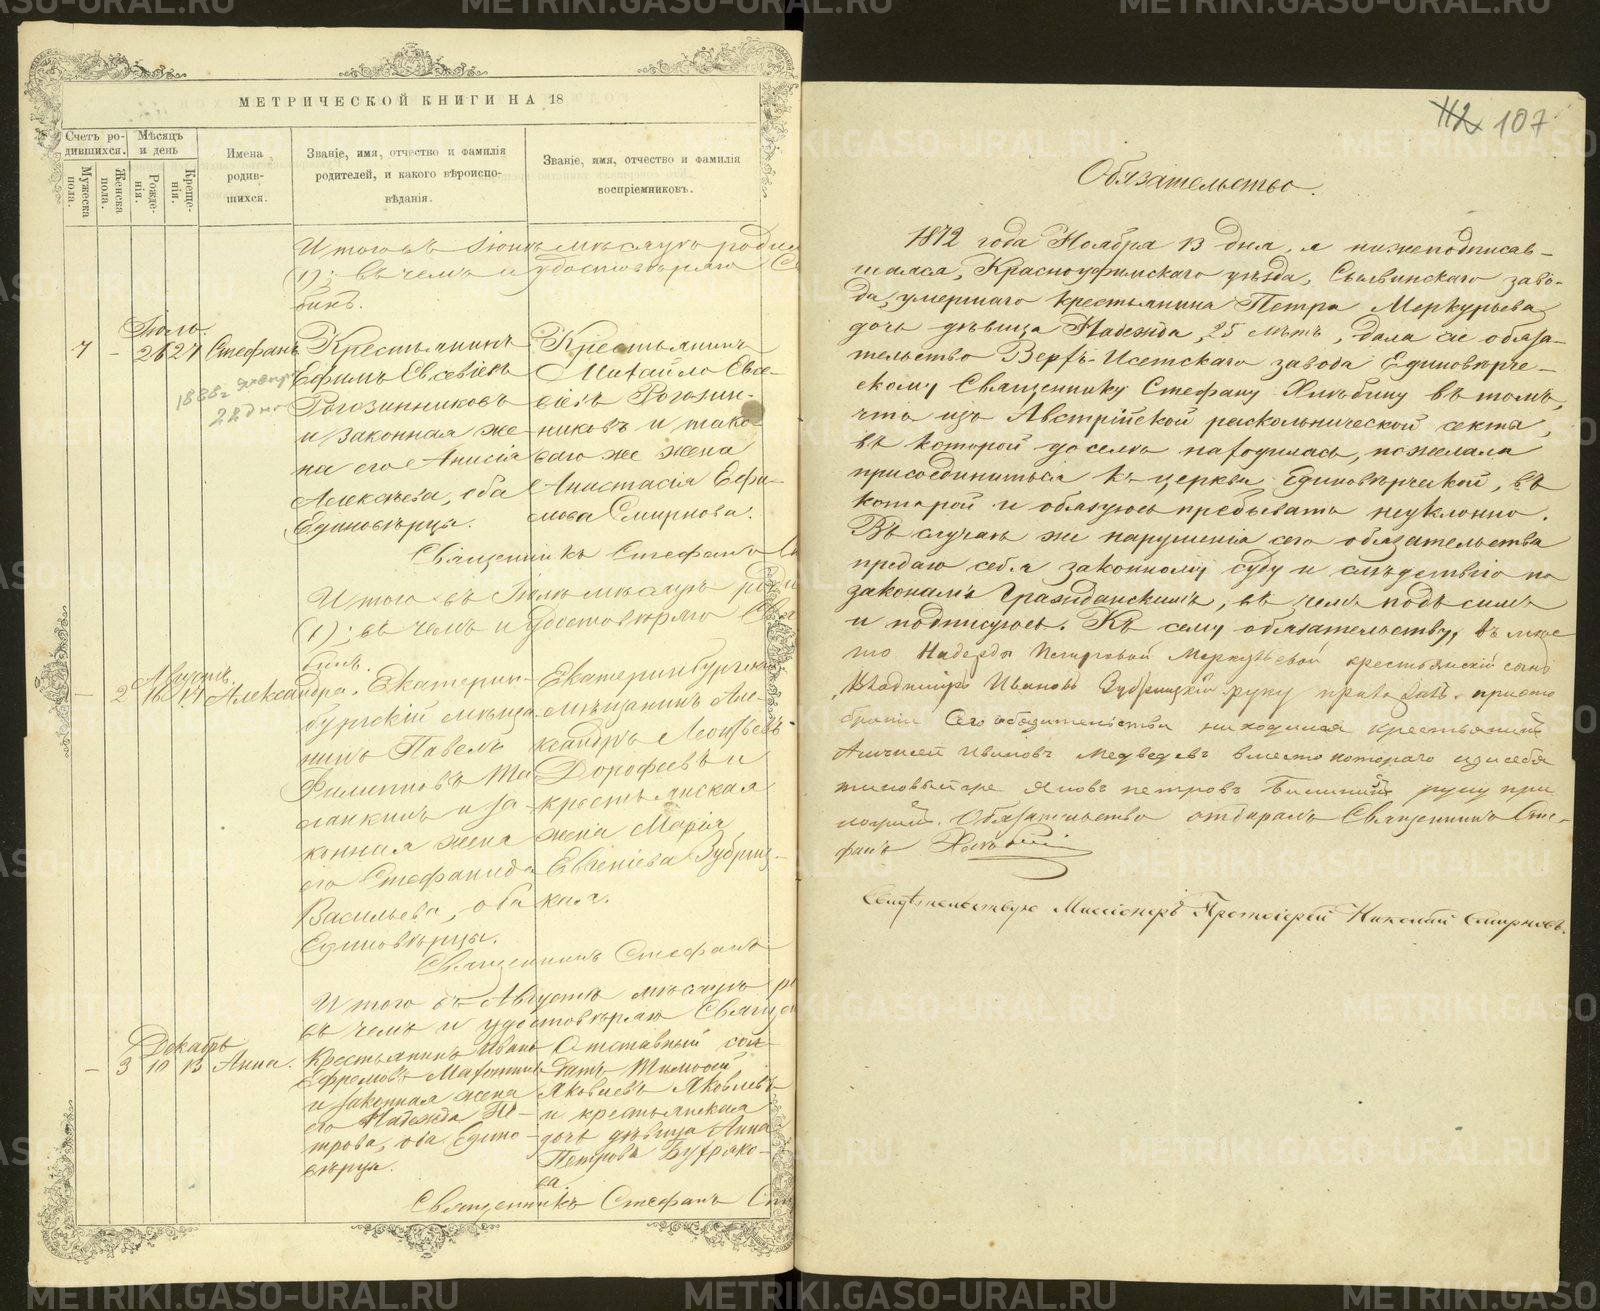 МЕТРИЧЕСКОЙ КНИГИ НА 18
Счетъ ро-
дившихся.
Мужеска
пола.
Женска
пола.
Мѣсяцъ
и день
Рожде-
нія.
Креще-
нія.
Имена
родив-
шихся.
Званіе, имя, отчество и фамилія
родителей, и какого вѣроиспо-
вѣданія.
Званіе, имя, отчество и фамилія
воспріемниковъ.
Итого въ Іюнѣ мѣсяцѣ роди
(1); въ чемъ и удостовѣряю С
бинъ.
Іюль.
7 – 26 27 Стефанъ
1888 г.
22 дно
Крестьянинъ
Ефимъ Евсевіевъ
Рогозинниковъ
и законная же-
на его Анисія
Алексѣева, оба
Единовѣрцы.
Крестьянинъ
Михайло Евсе-
віевъ Рогозин-
никовъ и тако-
ваго же жена
Анастасія Ефи-
мова Смирнова.
Священникъ Стефанъ
Итого въ Іюлѣ мѣсяцѣ роди
(1); въ чемъ и удостовѣряю Свя
бинъ.
Августъ.
– 2 16 17 Александра.
Екатерин-
бургскій мѣща-
нинъ Павелъ
Филипповъ
и за-
конная жена
его Стефанида
Васильева, оба
Единовѣрцы.
Екатеринбургскій
мѣщанинъ Але-
ксандръ Леонтьевъ
Дорофеевъ и
крестьянская
жена Марія
Евгеніева Зубриц-
кая.
Священникъ Стефанъ
Итого въ Августѣ мѣсяцѣ ро
въ чемъ и удостовѣряю Священ
Декабрь
– 3 10 13 Анна.
Крестьянинъ Иванъ
Ефремовъ
и законная жена
его Надежда Пе-
трова, оба Едино-
вѣрцы.
Отставный сол-
датъ Тимофей
Яковлевъ Яковлевъ
и крестьянская
дочь дѣвица Анна
Петрова Бухряко-
ва
Священникъ Стефанъ
112 107
Обязательство.
1872 года Ноября 13 дня, я нижеподписав-
шаяся, Красноуфимскаго уѣзда, Сылвинскаго заво-
да, умершаго крестьянина Петра Меркурьева
дочь дѣвица Надежда, 25 лѣтъ, дала сіе обяза-
тельство Верхъ-Исетскаго завода Единовѣрче-
скому Священнику Стефану Хлѣбину въ томъ,
что изъ Австрійской раскольнической секты,
въ которой доселѣ находилась, пожелала
присоединиться къ церкви Единовѣрческой, въ
которой и обязуюсь пребывать неуклонно.
Въ случаѣ же нарушенія сего обязательства
предаю себя законному суду и слѣдствію по
законамъ Гражданскимъ, въ чемъ подъ симъ
и подписуюсь. Къ сему обязательству, въ мѣс
то Надежды Петровой Меркурьевой крестьянскій сынъ
Владимiръ Ивановъ Зубрицкій руку приложилъ. при
браніи сего обязательства находился крестьянинъ
Алексей Ивановъ Медведевъ вместо котораго
Яковъ Петровъ руку при
ложилъ. Обязательство отбиралъ Священникъ Сте-
фанъ Хлѣбинъ
Свидѣтельствую Миссіонеръ Протоіерей Николай Смирновъ.
METRIKI.GASO-URAL.RU